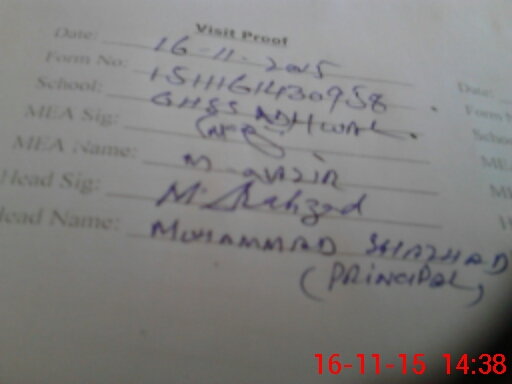 Visit Proof
Date: 16-11-2015
Form No: 1511161430958
School: GHSS ADHWAL
MEA Sig:
MEA Name:
Head Sig: M. Shahzad
Head Name: MUHAMMAD SHAZHAD
(PRINCIPAL)
Date:
Form
Scho
ME
16-11-15 14:38